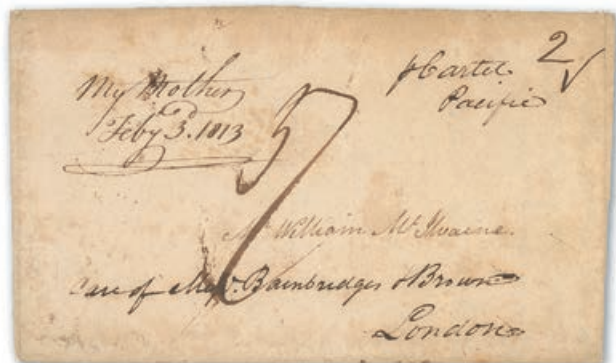 My Mother
Feby 3d. 1813
p Cartel
Pacific
2
Mr. William McIlvaine.
Care of Messrs. Bainbridges & Brown
London